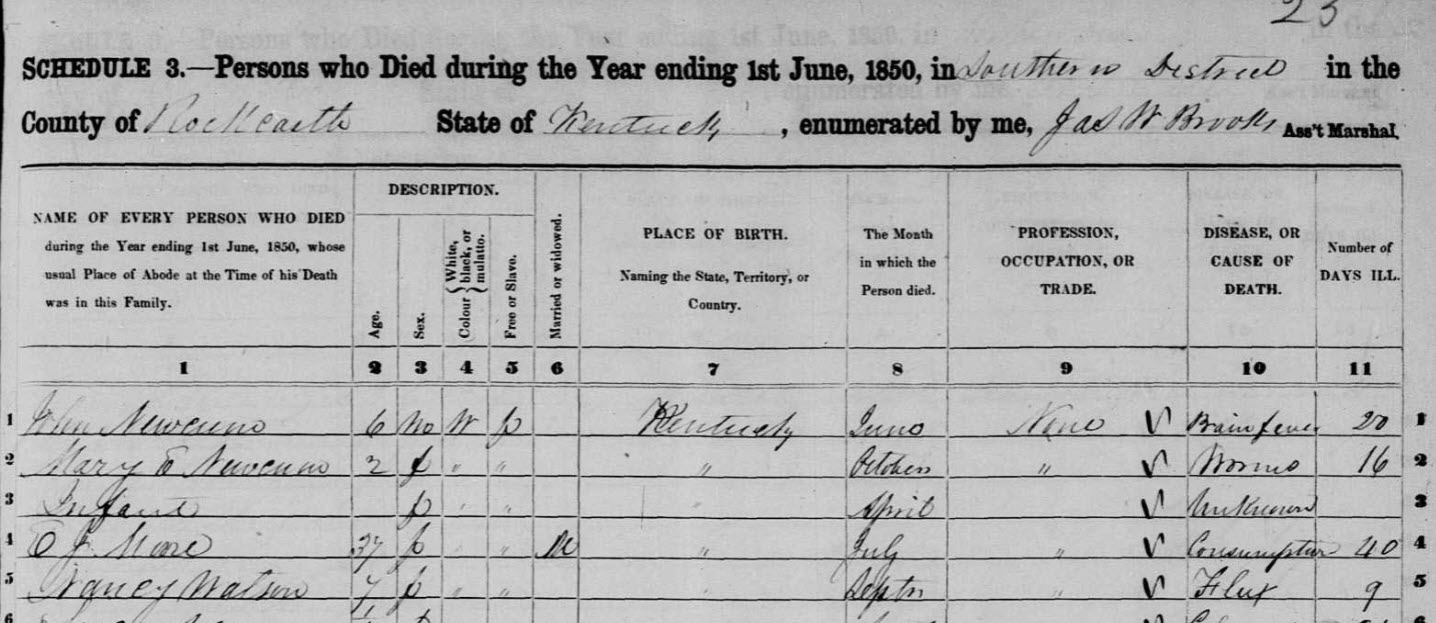 23
SCHEDULE 3.—Persons who Died during the Year ending 1st June, 1850, in Southern District in the
County of Rockcastle State of Kentucky, enumerated by me, Jas W Brooks Ass't Marshal.
NAME OF EVERY PERSON WHO DIED during the Year ending 1st June, 1850, whose usual Place of Abode at the Time of his Death was in this Family.
DESCRIPTION.
Age.
Sex.
Colour { White, black, or mulatto.
Free or Slave.
Married or widowed.
PLACE OF BIRTH. Naming the State, Territory, or Country.
The Month in which the Person died.
PROFESSION, OCCUPATION, OR TRADE.
DISEASE, OR CAUSE OF DEATH.
Number of DAYS ILL.
1 2 3 4 5 6 7 8 9 10 11
1 John Newcum 6 W f Kentucky June None √ Brain fever 20 1
2 Mary E Newcum 2 f " " " October " √ Worms 16 2
3 Infant f " " April √ Unknown 3
4 E J Moore 37 f " " M " July " √ Consumption 40 4
5 Nancy Watson 7 f " " " Septr " √ Flux 9 5
6 6